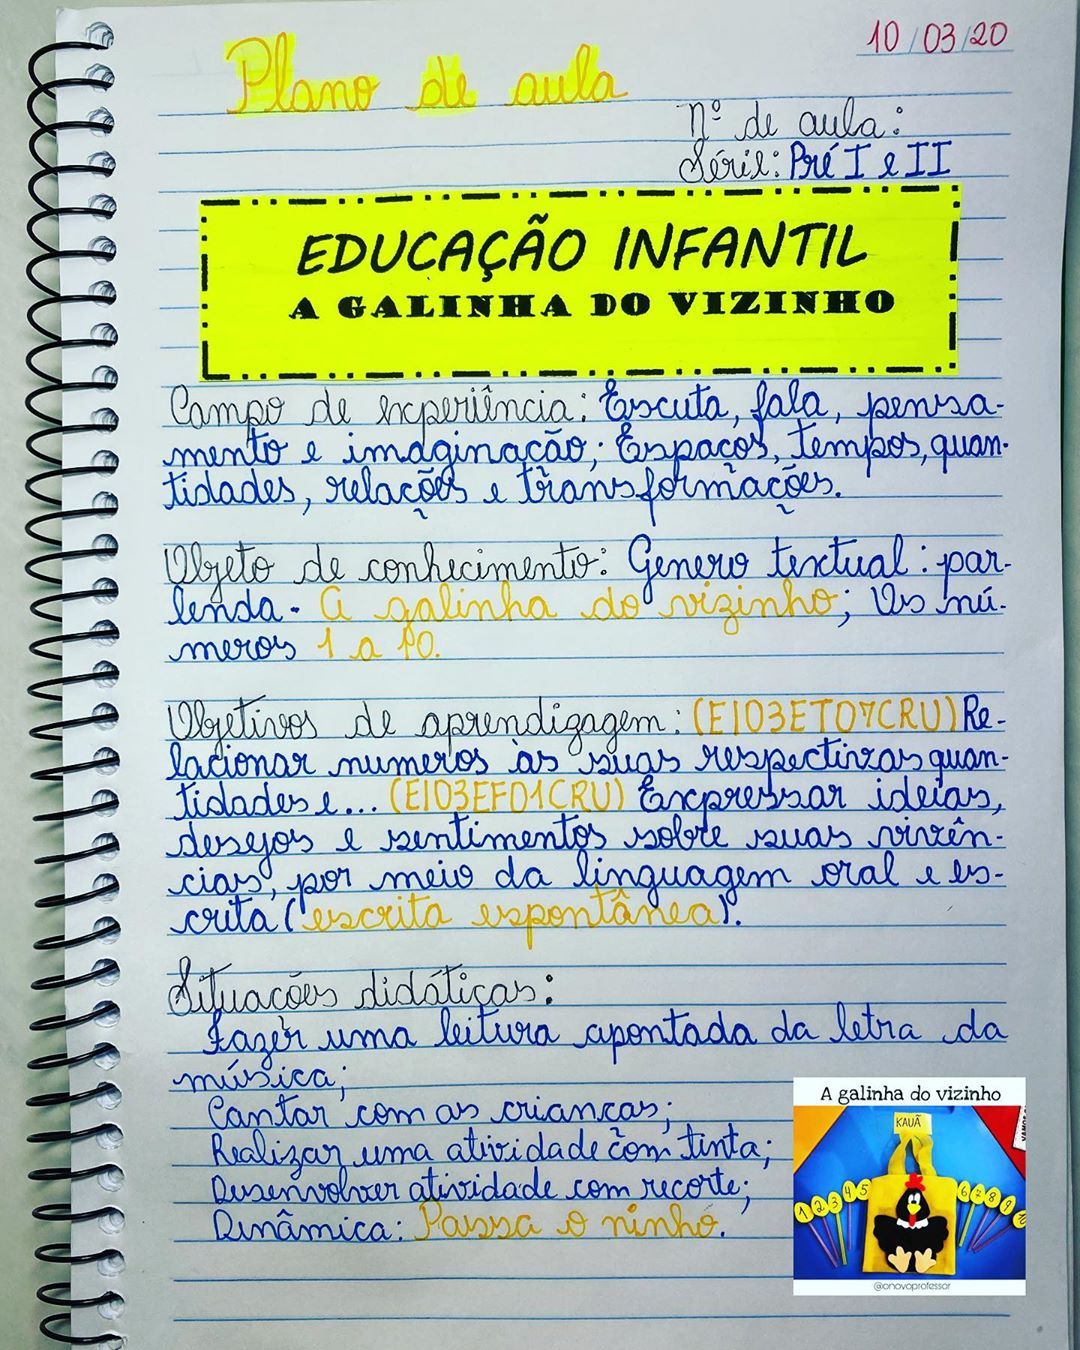 10/03/20
Plano de aula
Nº de aula:
Série: Pré I e II
EDUCAÇÃO INFANTIL
A GALINHA DO VIZINHO
Campo de experiência: Escuta, fala, pensa-
mento e imaginação; Espaços, tempos, quan-
tidades, relações e transformações.
Objeto de conhecimento: Genero textual: par-
lenda - A galinha do vizinho; Os nú-
meros 1 a 10.
Objetivos de aprendizagem: (EI03ET07CRU) Re-
lacionar numeros às suas respectivas quan-
tidades e... (EI03EF01CRU) Expressar ideias,
desejos e sentimentos sobre suas vivên-
cias, por meio da linguagem oral e es-
crita (escrita espontânea).
Situações didáticas:
Fazer uma leitura apontada da letra da
música;
Cantar com as crianças;
Realizar uma atividade com tinta;
Desenvolver atividade com recorte;
Dinâmica: Passa o ninho.
A galinha do vizinho
KAUÃ
1 2 3 4 5
6 7 8 9 10
@onovoprofessor